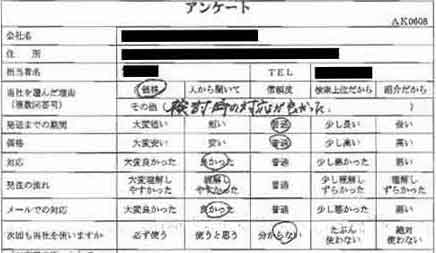 アンケート
AK0608
会社名
住 所
担当者名 TEL
当社を選んだ理由 価格 人から聞いて 信頼度 検索上位だから 紹介だから
(複数回答可) その他 (検討時の対応が良かった。)
発送までの期間 大変短い 短い 普通 少し長い 長い
価格 大変安い 安い 普通 少し高い 高い
対応 大変良かった 良かった 普通 少し悪かった 悪い
発注の流れ 大変理解しやすかった 理解しやすかった 普通 少し理解しずらかった 理解しずらかった
メールでの対応 大変良かった 良かった 普通 少し悪かった 悪い
次回も当社を使いますか 必ず使う 使うと思う 分からない たぶん使わない 絶対使わない